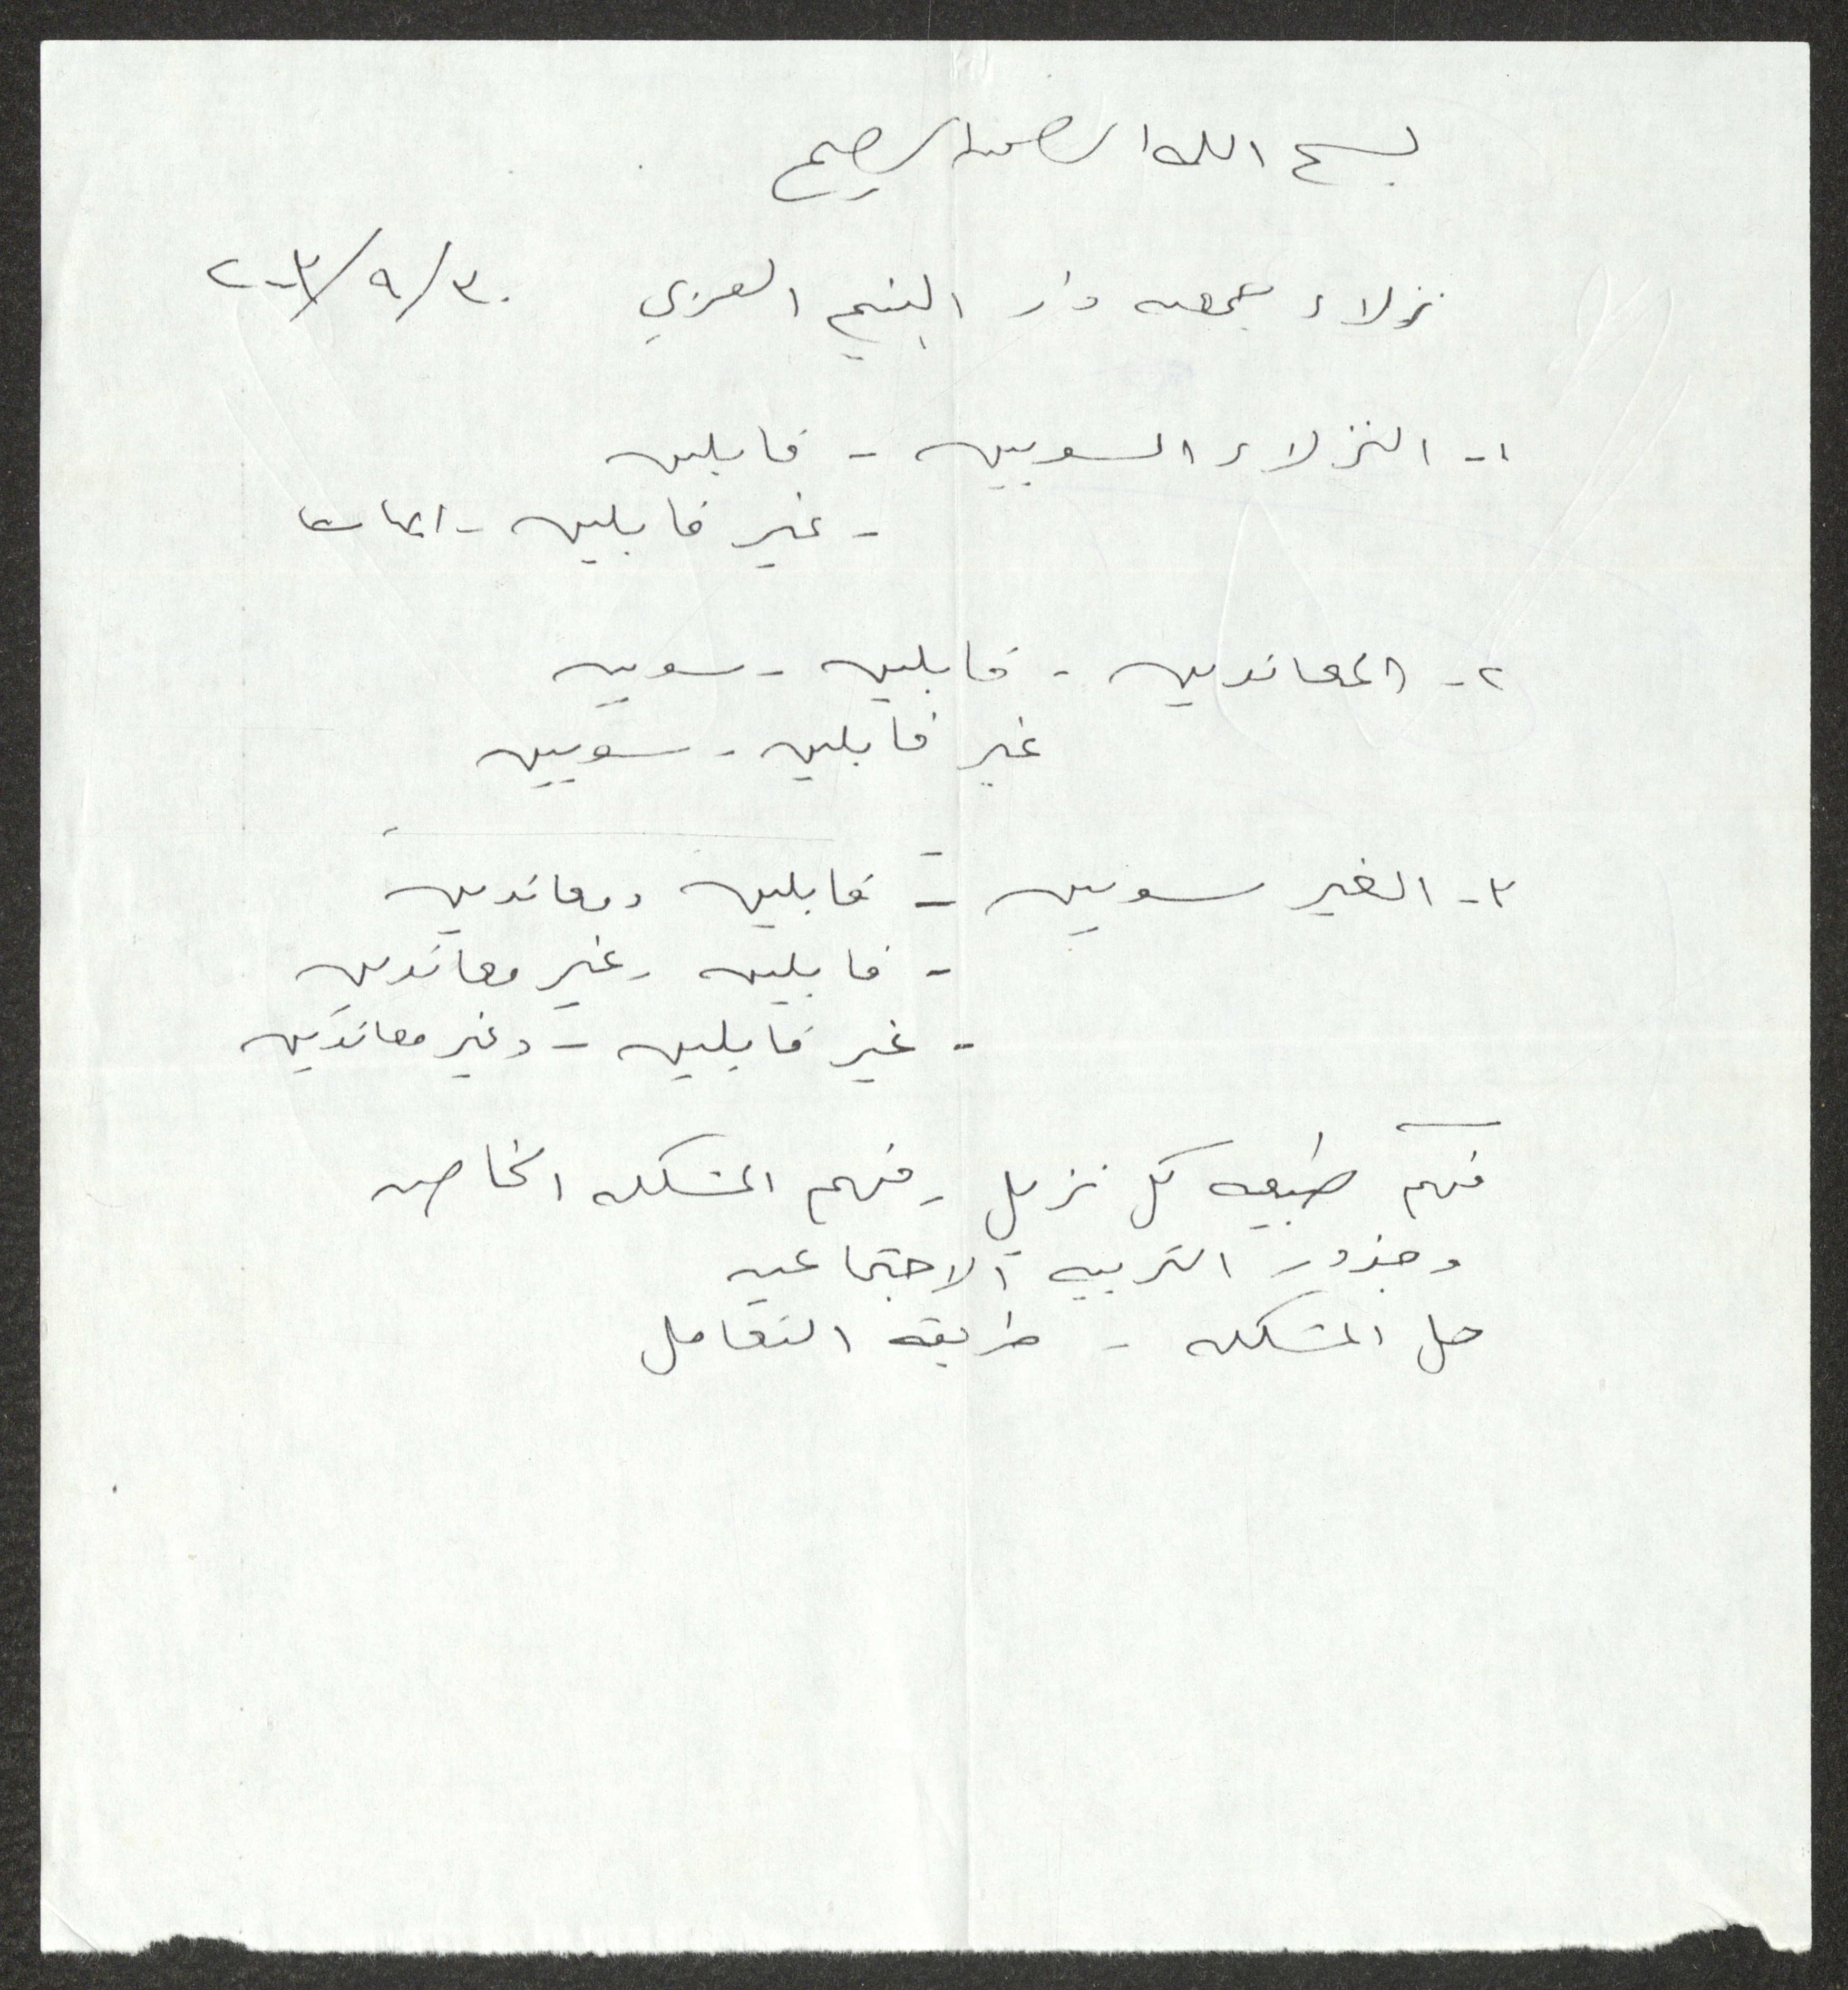 بسم الله الرحمن الرحيم
نزلاء جمعيه دار اليتيم العربي ٢٠٠٣/٩/٣٠
١- النزلاء السويين - قابلين
- غير قابلين -
٢- المعاندين - قابلين - سويين
غير قابلين - سويين
٣- الغير سويين - قابلين ومعاندين
- قابلين وغير معاندين
- غير قابلين - وغير معاندين
فهم طبيعه كل نزيل - فهم المشكله الخاصه
وجذور التربيه الاجتماعيه
حل المشكله - طريقه التعامل